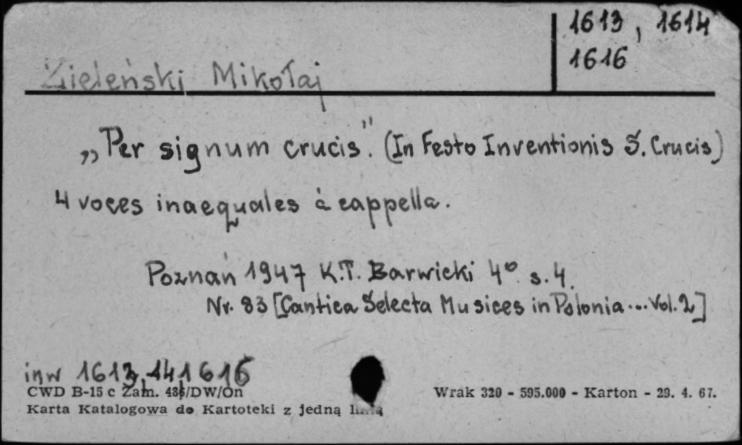 1613, 1614
1616
Zieleński Mikołaj
„Per signum crucis". (In Festo Inventionis S. Crucis)
4 voces inaequales à cappella.
Poznań 1947 K.T. Barwicki 4° s. 4.
Nr. 83 [Cantica Selecta Musices in Polonia... Vol. 2]
inw 1613, 14, 1616
CWD B-15 c Zam. /DW/On
Wrak 320 - 595.000 - Karton - 29. 4. 67.
Karta Katalogowa do Kartoteki z jedną